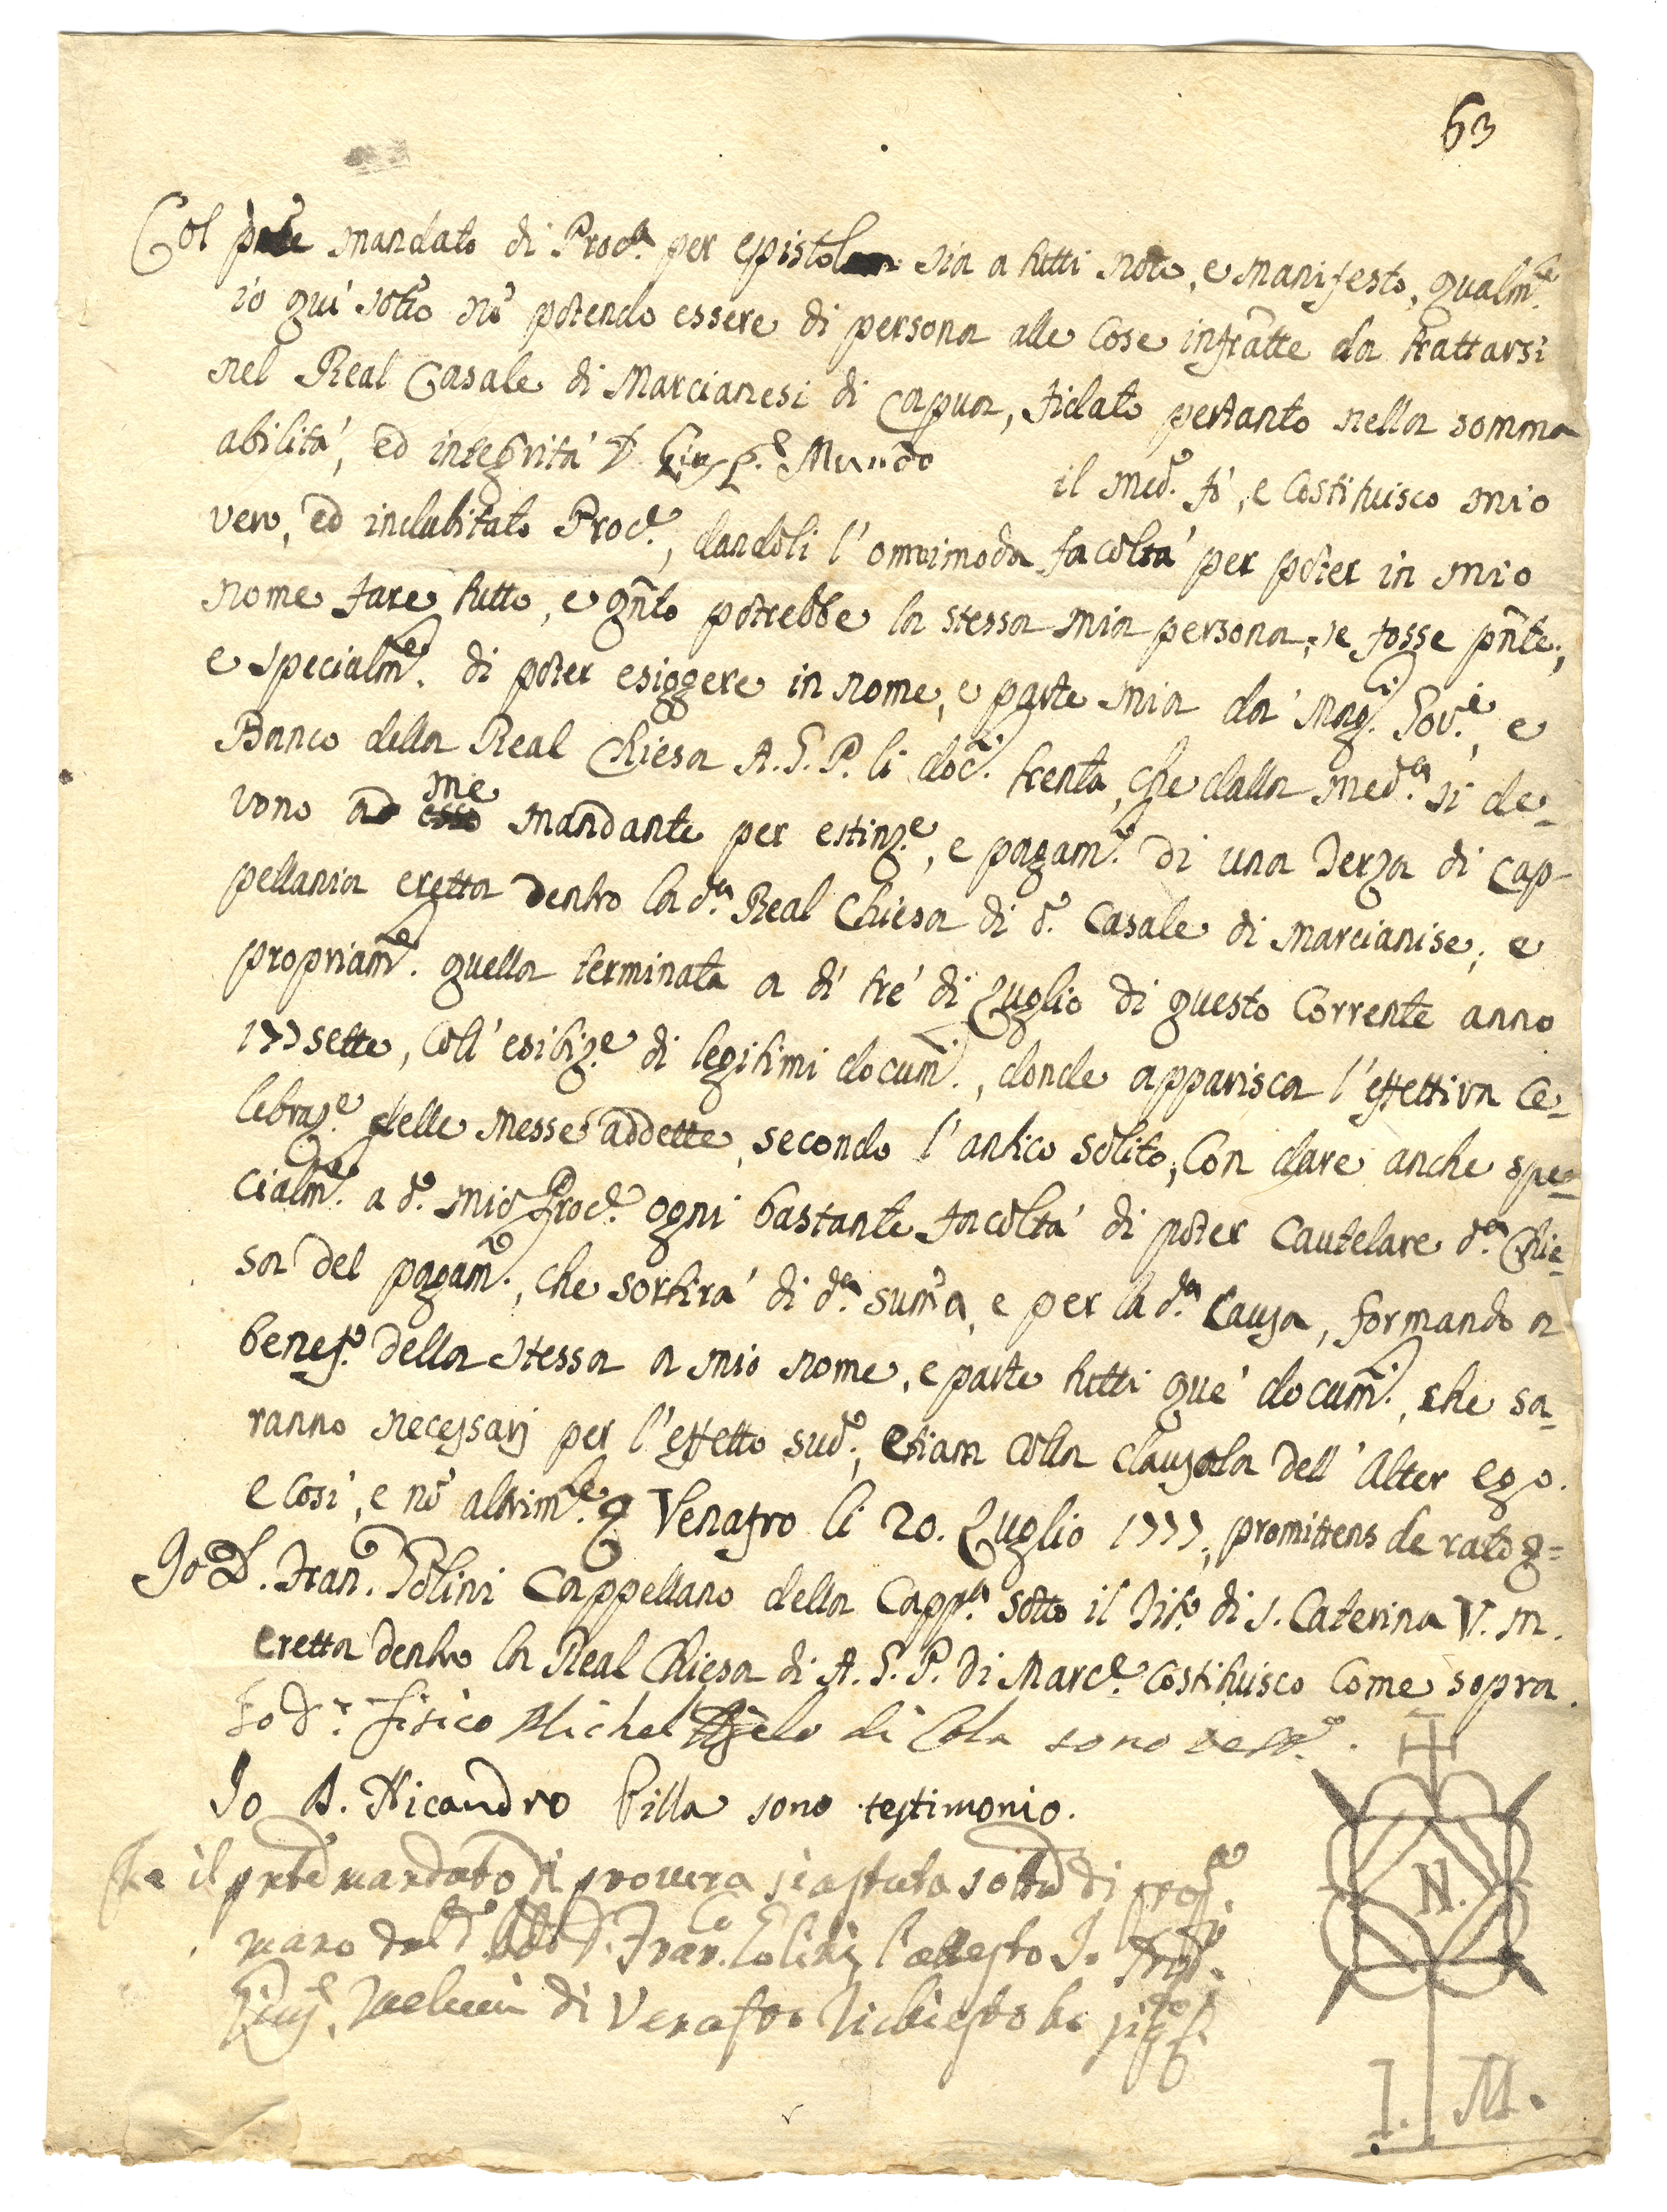 63
Col pñte mandato di Proc.ª per epistolam sia a tutti noto, e manifesto, qualm.te
io quí sott.o nõ potendo essere di persona alle cose infratte da trattarsi
nel Real Casale di Marcianesi di Capua, fidato pertanto nella somma
abilitá, ed integritá D. Mundo il med.o fó, e costituisco mio
vero, ed indubitato Proc.e, dandoli l'omnimoda facoltá per poter in mio
nome fare tutto, e qnto potrebbe la stessa mia persona, se fosse pñte,
e specialm.e di poter esiggere in nome, e parte mia da' Mag.i Gov.i, e
Banco della Real Chiesa A. G. P. li doc.i trenta, che dalla med.ª si de-
vono ad me esso mandante per estinz.e, e pagam.o di una Terza di Cap-
pellania eretta dentro la d.ª Real Chiesa di d.o Casale di Marcianise, e
propriam.e quella terminata a dí tré di Luglio di questo corrente anno
177sette, coll'esibiz.e di legitimi docum.i, donde apparisca l'effettiva ce-
lebraz.e delle Messe addette, secondo l'antico solito, con dare anche spe-
cialm.e a d.o mio Proc.e ogni bastante facoltá di poter cautelare d.ª Chie-
sa del pagam.o, che sortirá di d.ª sum̃a, e per la d.ª causa, formando a
benef.o della stessa a mio nome, e parte tutti que' docum.i, che sa-
ranno necessarj per l'effetto sud.o, etiam colla clausola dell'Alter ego.
e cosí, e nõ altrim.te Venafro li 20. Luglio 1777, promittens de rato
Io D. Fran.o Tolini Cappellano della Capp.ª sotto il tit.o di S. Caterina V. M.
eretta dentro la Real Chiesa di A. G. P. di Marc.e costituisco come sopra.
Io D.r fisico Michel Angelo di Cola sono test.o
Io D. Nicandro Pilla sono testimonio.
Che il pñte mandato di procura sia stata sott.a di prop.ª
mano dal D. Fran.co Tolini, l'attesto Io
di Venafro richiesto ho sig.to
N.
I. M.